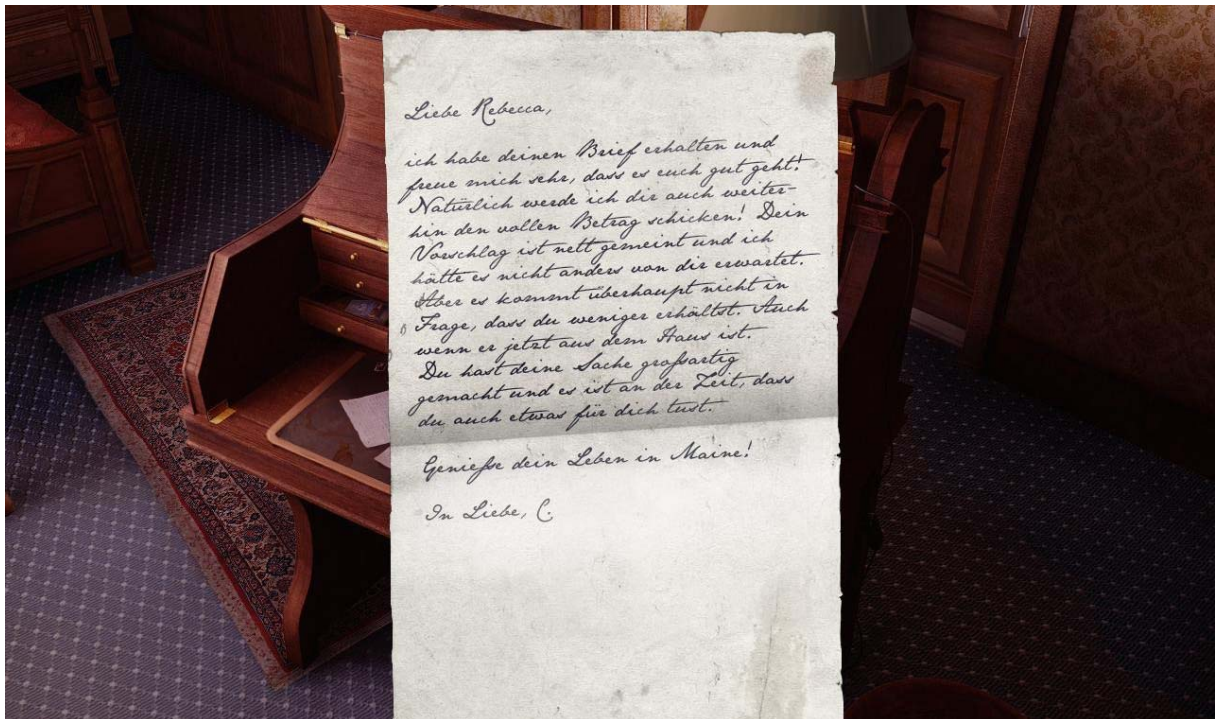 Liebe Rebecca,
ich habe deinen Brief erhalten und
freue mich sehr, dass es euch gut geht!
Natürlich werde ich dir auch weiter-
hin den vollen Betrag schicken! Dein
Vorschlag ist nett gemeint und ich
hätte es nicht anders von dir erwartet.
Aber es kommt überhaupt nicht in
Frage, dass du weniger erhältst. Auch
wenn er jetzt aus dem Haus ist.
Du hast deine Sache großartig
gemacht und es ist an der Zeit, dass
du auch etwas für dich tust.
Genieße dein Leben in Maine!
In Liebe, C.